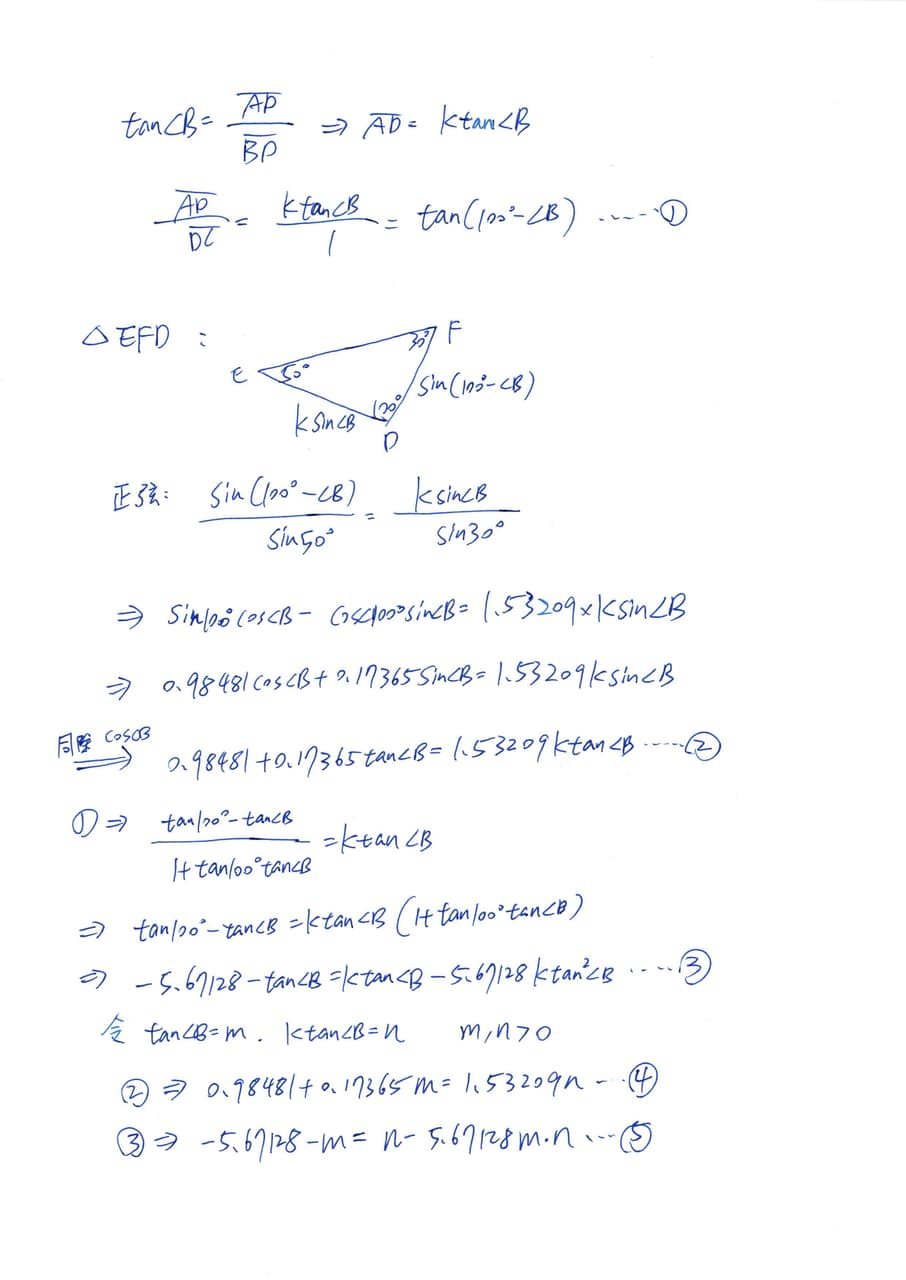 tan∠B = AD/BD ⇒ AD = k tan∠B
AD/DC = k tan∠B/1 = tan(100°-∠B) ----- ①
△EFD :
F
30°
E
50°
sin(100°-∠B)
100°
k sin∠B
D
正弦: sin(100°-∠B)/sin50° = k sin∠B/sin30°
⇒ sin100°cos∠B - cos100°sin∠B = 1.53209×k sin∠B
⇒ 0.98481cos∠B + 0.17365sin∠B = 1.53209k sin∠B
同除 cos∠B ⇒ 0.98481+0.17365tan∠B = 1.53209k tan∠B ----- ②
① ⇒ tan100°-tan∠B/1+tan100°tan∠B = k tan∠B
⇒ tan100°-tan∠B = k tan∠B (1+tan100°tan∠B)
⇒ -5.67128-tan∠B = k tan∠B-5.67128k tan²∠B ----- ③
令 tan∠B=m. k tan∠B=n m,n>0
② ⇒ 0.98481+0.17365m = 1.53209n --- ④
③ ⇒ -5.67128-m = n-5.67128m·n --- ⑤